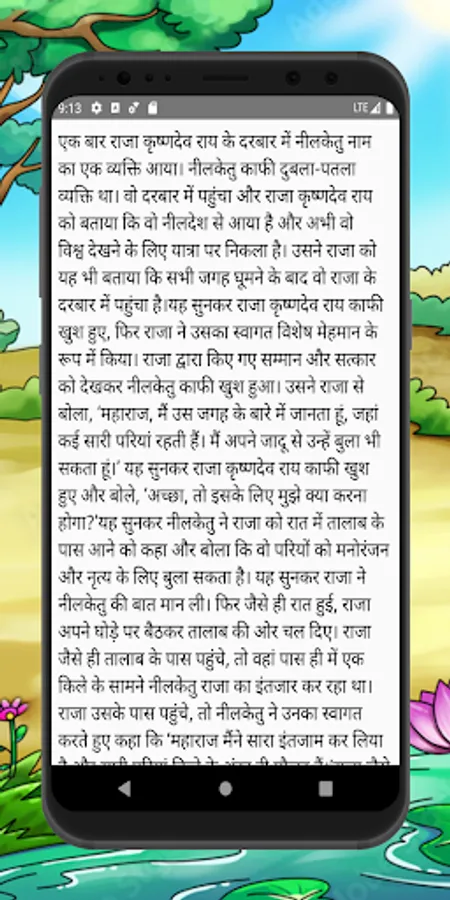 9:13
LTE
एक बार राजा कृष्णदेव राय के दरबार में नीलकेतु नाम
का एक व्यक्ति आया। नीलकेतु काफी दुबला-पतला
व्यक्ति था। वो दरबार में पहुंचा और राजा कृष्णदेव राय
को बताया कि वो नीलदेश से आया है और अभी वो
विश्व देखने के लिए यात्रा पर निकला है। उसने राजा को
यह भी बताया कि सभी जगह घूमने के बाद वो राजा के
दरबार में पहुंचा है।यह सुनकर राजा कृष्णदेव राय काफी
खुश हुए, फिर राजा ने उसका स्वागत विशेष मेहमान के
रूप में किया। राजा द्वारा किए गए सम्मान और सत्कार
को देखकर नीलकेतु काफी खुश हुआ। उसने राजा से
बोला, 'महाराज, मैं उस जगह के बारे में जानता हूं, जहां
कई सारी परियां रहती हैं। मैं अपने जादू से उन्हें बुला भी
सकता हूं।’ यह सुनकर राजा कृष्णदेव राय काफी खुश
हुए और बोले, 'अच्छा, तो इसके लिए मुझे क्या करना
होगा?'यह सुनकर नीलकेतु ने राजा को रात में तालाब के
पास आने को कहा और बोला कि वो परियों को मनोरंजन
और नृत्य के लिए बुला सकता है। यह सुनकर राजा ने
नीलकेतु की बात मान ली। फिर जैसे ही रात हुई, राजा
अपने घोड़े पर बैठकर तालाब की ओर चल दिए। राजा
जैसे ही तालाब के पास पहुंचे, तो वहां पास ही में एक
किले के सामने नीलकेतु राजा का इंतजार कर रहा था।
राजा उसके पास पहुंचे, तो नीलकेतु ने उनका स्वागत
करते हुए कहा कि 'महाराज मैंने सारा इंतजाम कर लिया